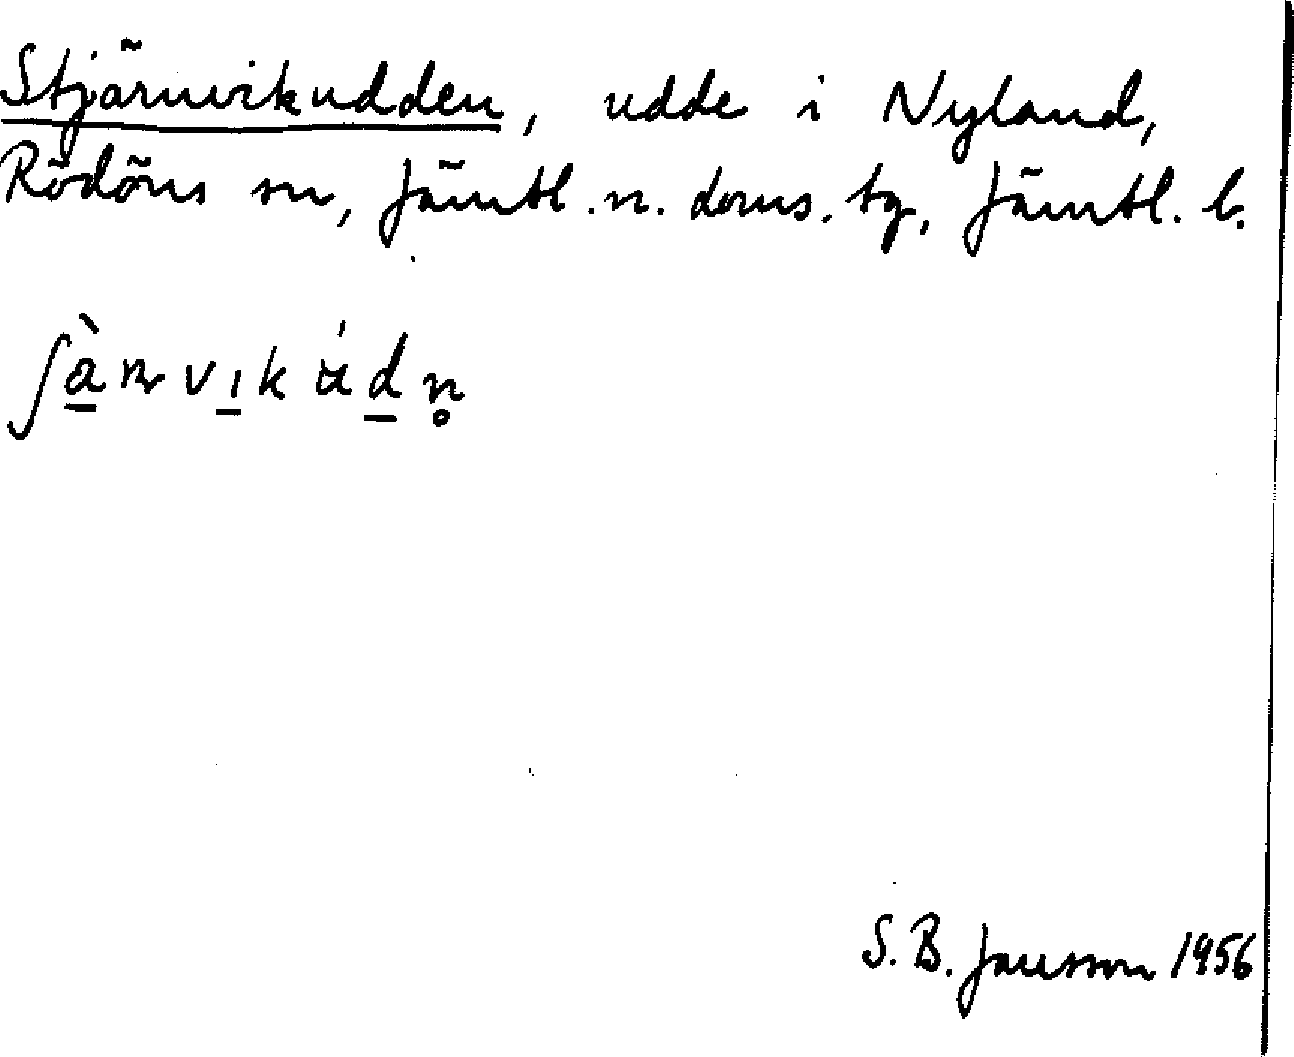 Stjärnvikudden, udde i Nyland,
Rödöns sn, Jämtl. n. doms. tg, Jämtl. l.
ʃà̠ɳvı̠kʉ́d̠n̥
S. B. Jansson 1956